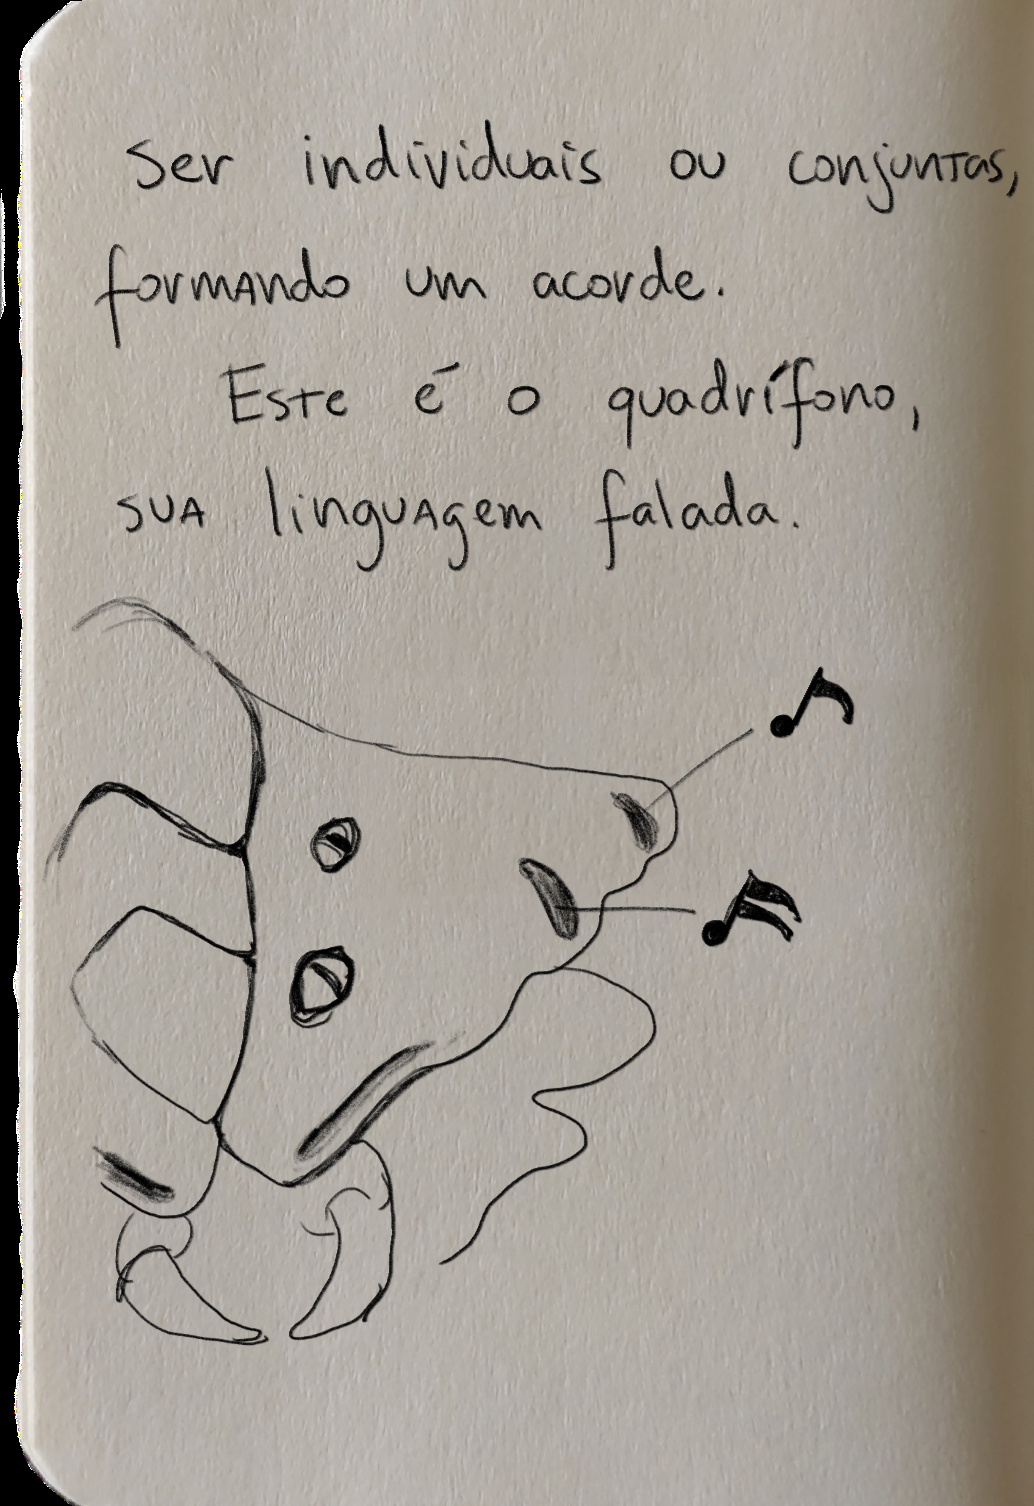 Ser individuais ou conjuntas,
formando um acorde.
Este é o quadrífono,
sua linguagem falada.